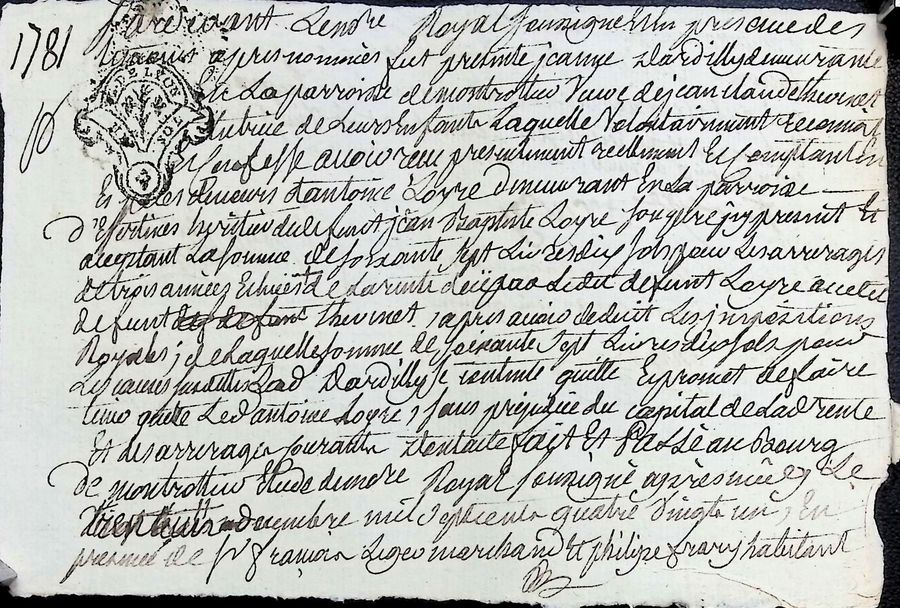 1781
Pardevant Le notre Royal soussigné Et En presence des
temoins apres nommés fut presente jeanne Dardilly demeurante
En La parroisse de montrottier Veuve de jean claude thevenet
tutrice de Leurs Enfants Laquelle Volontairement reconnoit
Et Confesse avoir reçu presentement reellement Et Comptant En
Especes des deniers d'antoine Loyre demeurant En La parroisse
D'Essertines heritier du defunt jean Baptiste Loyre son pere jcy present Et
acceptant La somme de soixante sept Livres dix sols pour Les arrerages
de trois années Echües de La rente deüe par Ledit defunt Loyre audit
defunt thevenet, apres avoir deduit Les jmpositions
Royales; de Laquelle somme de soixante sept Livres dix sols pour
Les causes susdittes Lad Dardilly se contente quitte Et promet de faire
tenir quitte Led antoine Loyre, sans prejudice du capital de Lad rente
Et des arrerages courants Dont acte fait Et Passé au Bourg
de montrottier Etude du notre Royal soussigné après midy Le
decembre mil sept cents quatre vingts un, En
presence de sr françois Liger marchand Et philipe frary habitant